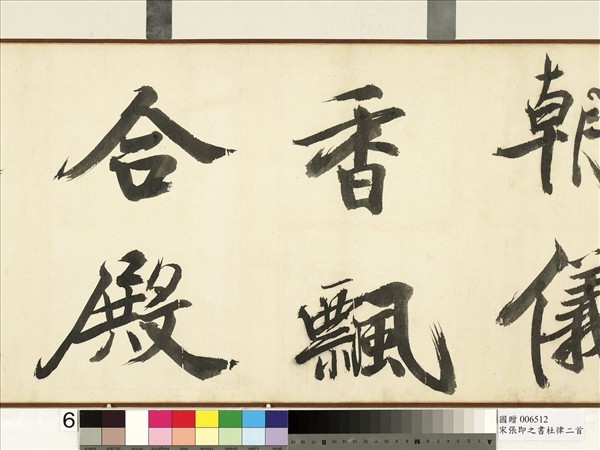 朝儀
香飄
合殿
6
國贈 006512
宋張即之書杜律二首